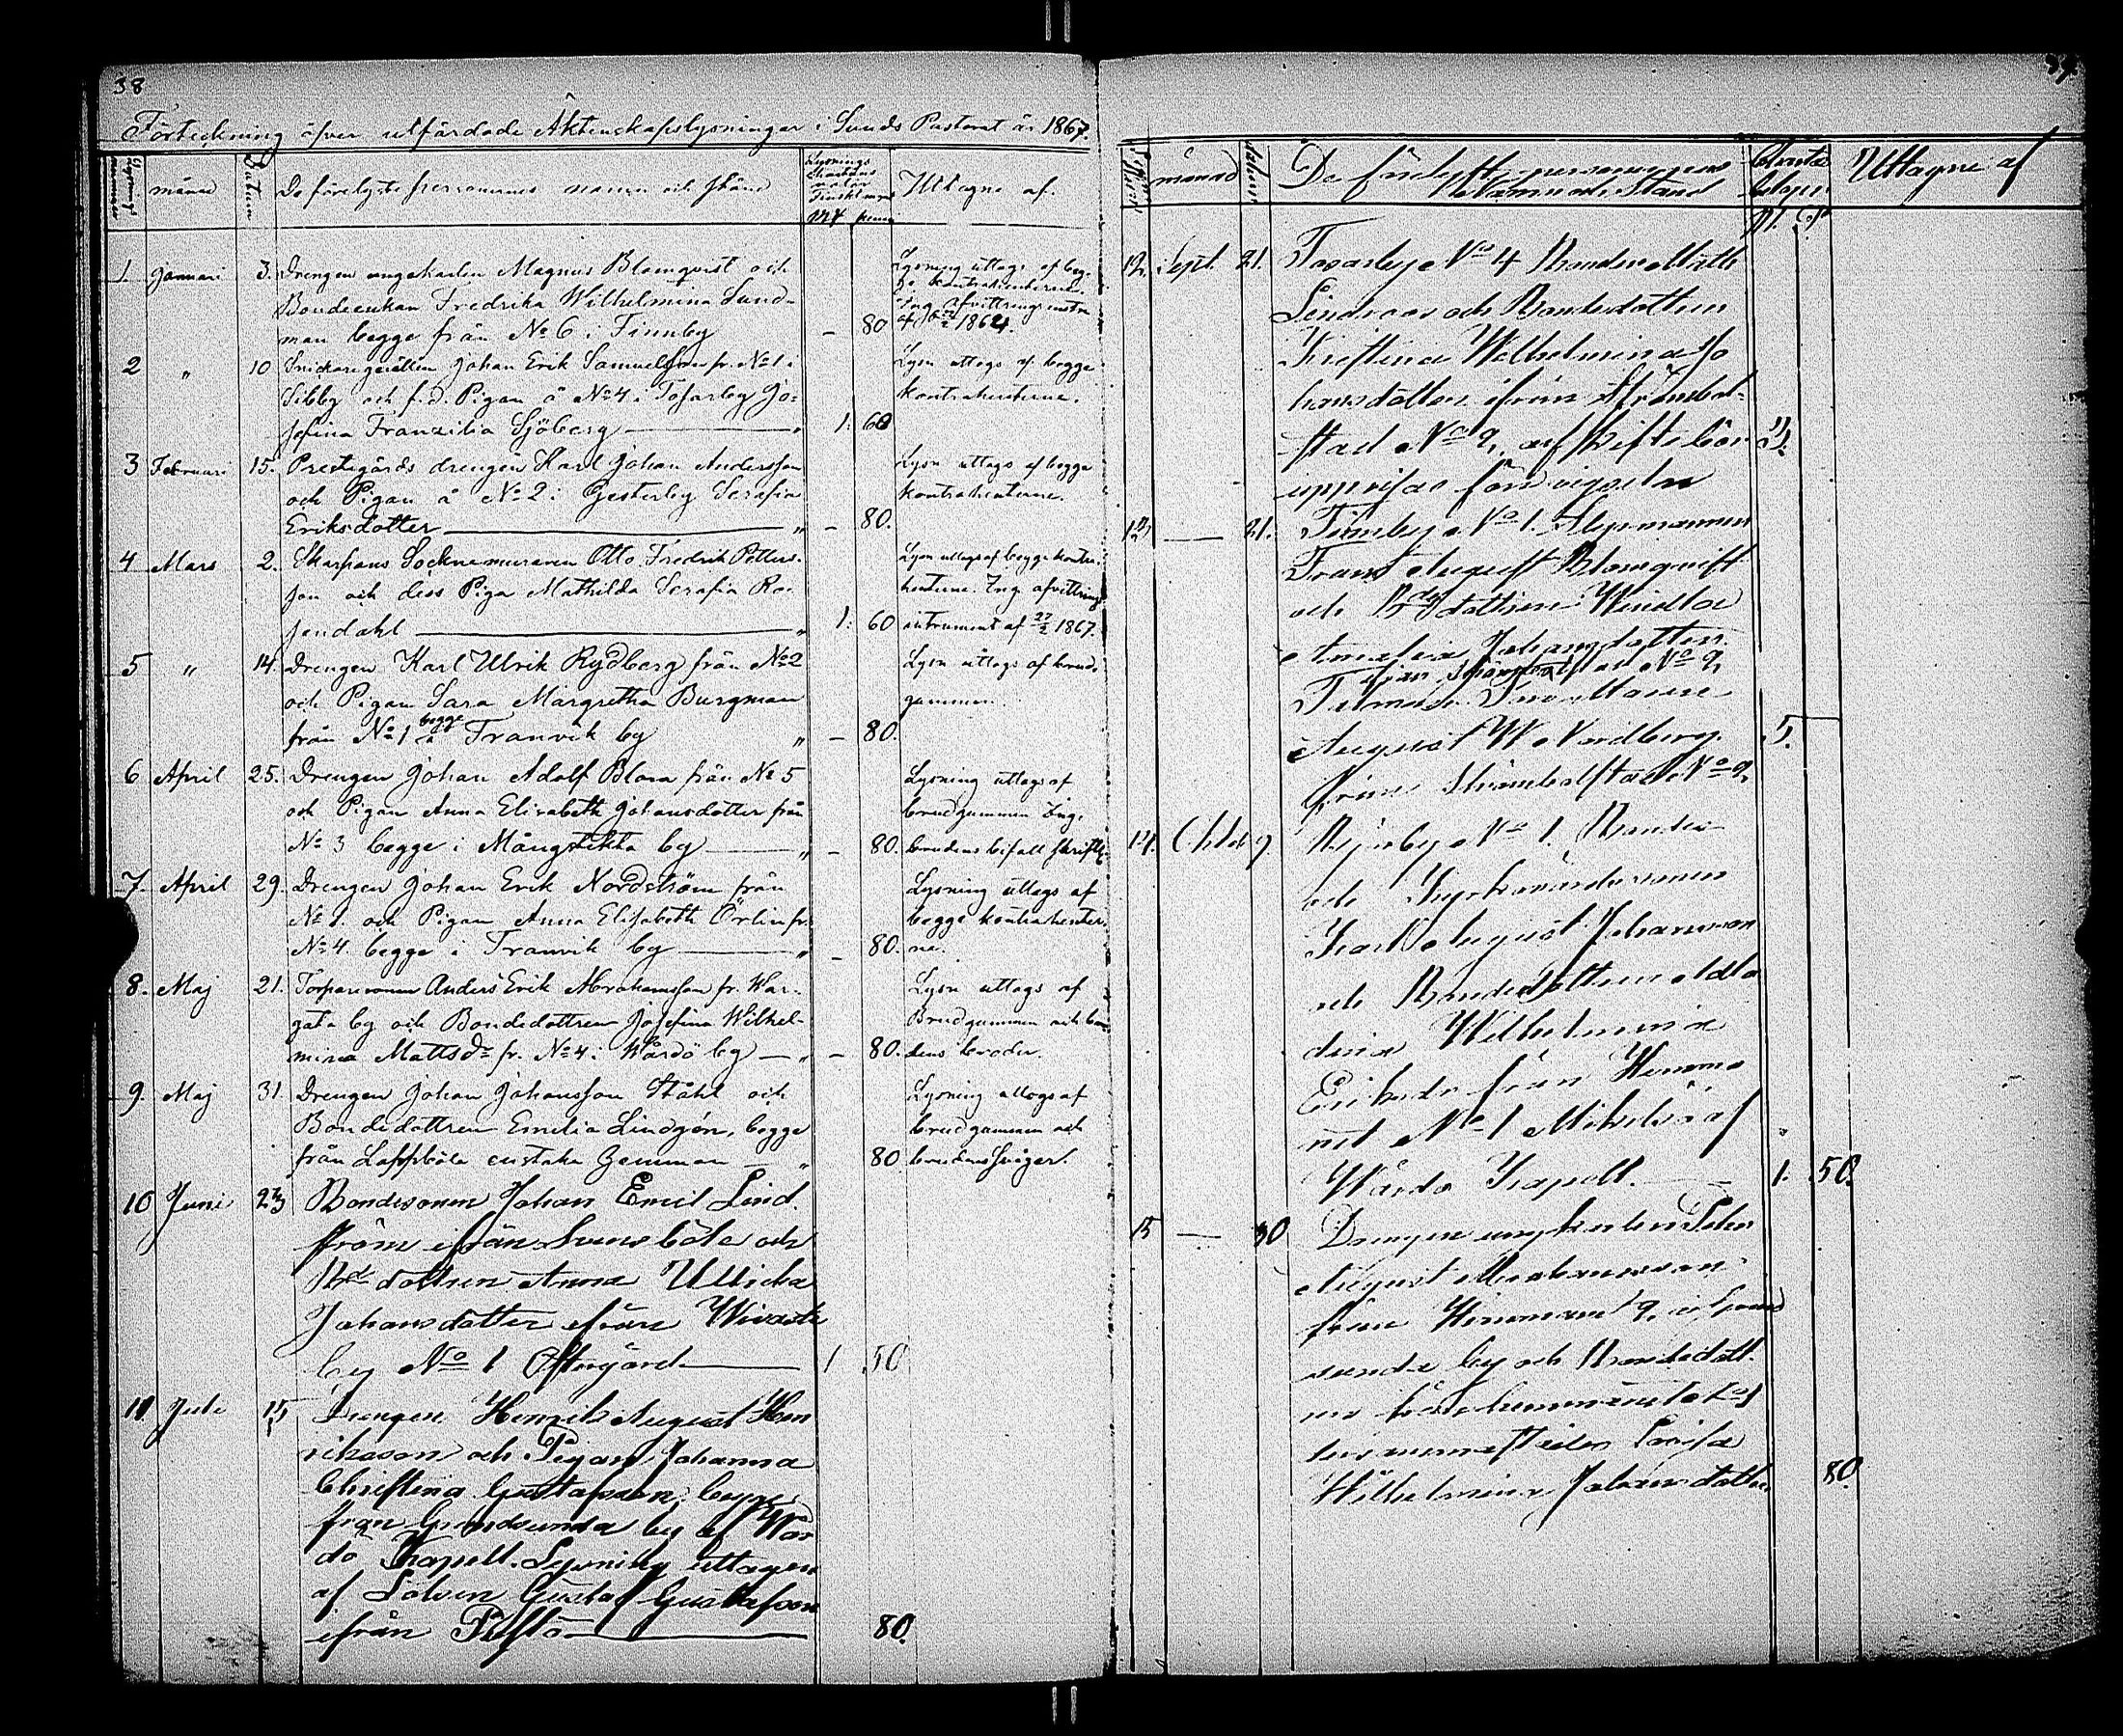 38
Förteckning öfver utfärdade Äktenskapslysningar i Sunds Pastorat år 1867.
Lysnings nummer
månad
Datum
De förelyste personernes namn och stånd
Lysnings
Finskt mynt
Mk penni
Uttagne af.
1 Januari 3. Drengen ungekarlen Magnus Blomqvist och
Bondeenkan Fredrika Wilhelmina Lund-
man begge från No 6 i Finnby — 80
Lysning uttags af beg-
ge kontrahenterne.
Ing. Afvittringsinstru
1864.
2 " 10 Snickaregesällen Johan Erik Samuelsson fr. No 1 i
Sibby och f.d. Pigan å No 4 i Tosarby Jo-
sefina Franzilia Sjöberg — " 1: 60
Lysn uttags af begge
kontrahenterne.
3 Februari 15. Prestegårds drengen Karl Johan Andersson
och Pigan å No 2 i Gesterby Serafia
Eriksdotter — " — 80.
Lysn uttags af begge
kontrahenterne.
4 Mars 2. Skarpans Socknemuraren Otto Fredrik Petters-
son och dess Piga Mathilda Serafia Ro-
sendahl — " 1: 60
Lysn uttags af begge kontra-
henterne. Ing. afvittrings
intrument af 27/2 1867.
5 " 14. Drengen Karl Ulrik Rydberg från No 2
och Pigan Sara Margretha Burgman
från No 1 begge å Tranvik by " — 80.
Lysn uttags af brud-
gummen.
6 April 25. Drengen Johan Adolf Blom från No 5
och Pigan Anna Elisabeth Johansdotter från
No 3 begge i Mångstekta by — " — 80.
Lysning uttags af
brudgummen Ing.
brudens bifall skriftl.
7. April 29. Drengen Johan Erik Nordström från
No 1. och Pigan Anna Elisabeth Örlin fr.
No 4. begge i Tranvik by — " — 80.
Lysning uttags af
begge kontrahenter-
ne.
8. Maj 21. Torparesonen Anders Erik Abrahamsson fr. War-
gata by och Bondedottren Josefina Wilhel-
mina Mattsdr fr. No 4 i Wårdö by — " — 80.
Lysn uttags af
Brudgummen och bru-
dens broder.
9. Maj 31. Drengen Johan Johansson Ståhl och
Bondedottren Emelia Lindgén, begge
från Lappböle enstaka hemman — " 80
Lysning uttogs af
brudgummen och
brudens svåger.
10 Juni 23 Bondesonen Johan Emil Lind-
ström ifrån Svensböle och
Bd dottren Anna Ullrika
Johansdotter ifrån Wivasta
by No 1 Östergård — 1 50
11 Juli 15 Drengen Henrik August Hen
riksson och Pigan Johanna
Christina Gustafsson, begge
från Grundsunda by af Wår
dö Kapell. Lysning uttagen
af Gustaf Gustafsson
ifrån — 80.
månad
datum
De förelyste personernas
Namn och Stånd
Uttagne af
12. Sept. 21. Tosarby No 4 Bonden Matts
Lindroos och Bondedottren
Kristina Wilhelmina Jo
hansdotter ifrån Strömbol-
stad No 2, afskiftsbör
uppvisas före vigseln
13 — 21. Finnby No 1. Styrmannen
Frans August Blomqvist
och Bde dottren
Amalia Johansdotter
från Strömbolstad No 2,
August W. Nordberg 5.
från Strömbolstad No 2,
14. Oktob 9. No 1. Bonde-
och Kyrkovärdssonen
Karl August Johansson
och Bondedottren
Wilhelmina
Eriksdr från Hemma
net No 1 af
Wårdö Kapell. — 1. 50.
15 — 30 Drengen ungkarlen
August Abrahamsson
från Hemmant 2, i Grund
sunda by och Bondedott-
ren från hemmanet No 1
Lovisa
Wilhelmina Johansdotter 80.